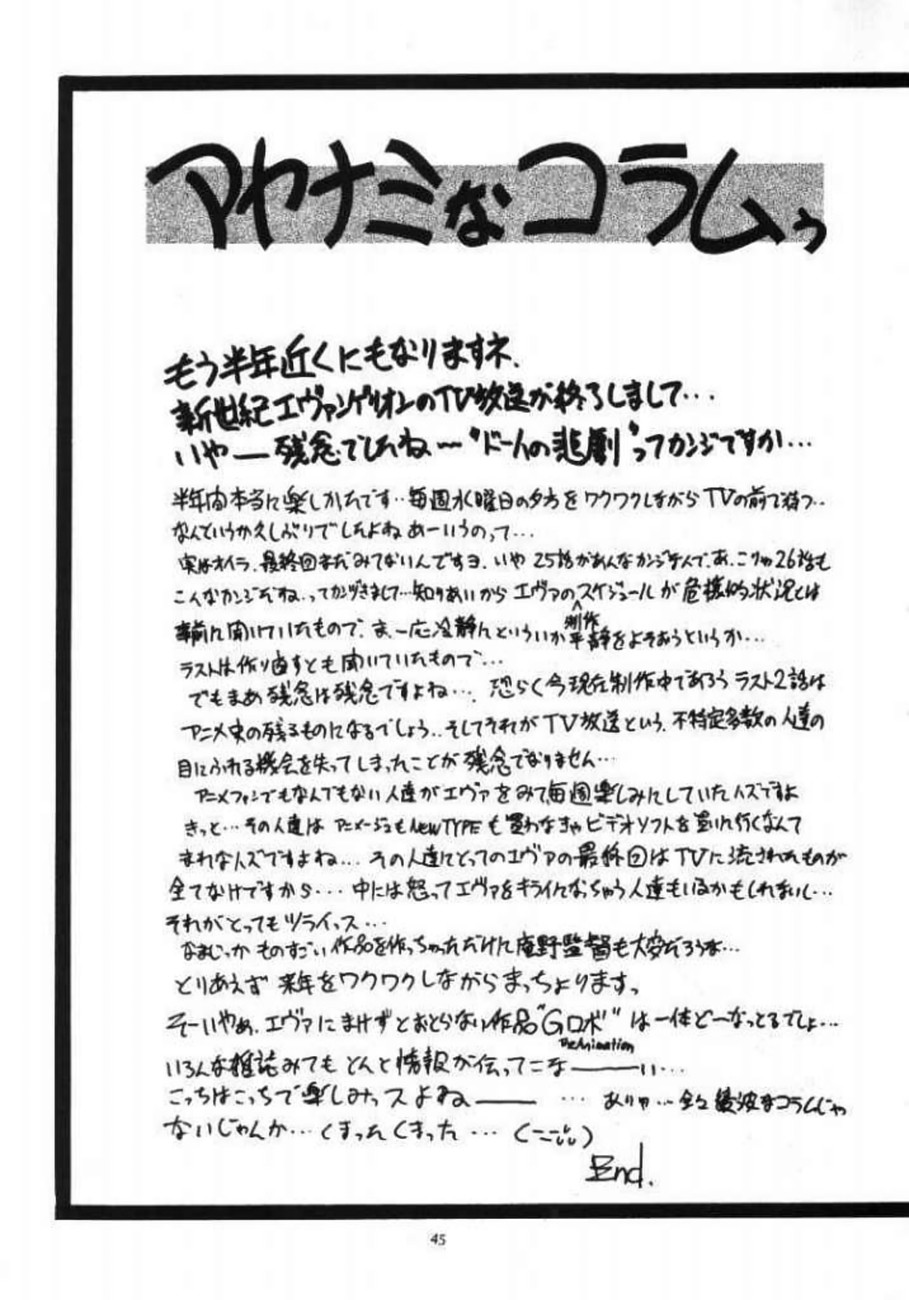 アヤナミなコラムぅ
もう半年近くにもなりますネ.
新世紀エヴァンゲリオンのTV放送が終了しまして…
いやー残念でしたね〜“ドームの悲劇”ってカンジですか…
半年間本当に楽しかたです‥毎週水曜日の夕方をワクワクしながらTVの前で待つ‥
なんというか久しぶりでしたよねあーいうのって…
実はオイラ、最終回まだみてないんですヨ、いや25話があんなかんじなんで、あ、こりゃ26話も
こんなカンジだねってカンヅきまして…知りあいからエヴァの制作スケジュールが危機的状況とは
事前に聞いていたもので、ま、一応冷静んといういか平静をよそおうというか…
ラストは作り直すとも聞いていたもので…
でもまぁ残念は残念ですよね…、恐らく今現在制作中であろうラスト2話は
アニメ史の残るものになるでしょう‥そしてそれがTV放送という、不特定多数の人達の
目にふれる機会を失ってしまったことが残念でなりません…
アニメファンでもなんでもない人達がエヴァをみて、毎週楽しみにしていたハズですよ
きっと…その人達はアニメージュもNEWTYPEも買わなきゃビデオソフトを買いに行くなんて
まれなハズですよね…その人達にとってのエヴァの最終回はTVに流されたものが
全てなけですから…中には怒ってエヴァをキライになっちゃう人達もいるかもしれまいし…
それがとってもツライッス…
なまじっかものすごい作品を作っちゃっただけに庵野監督も大変だろうな…
とりあえず来年をワクワクしながらまっちょります。
そーいやぁ、エヴァにまけずとおとらない作品“Gロボ”は一体どーなっとるでしょ…
The Animation
いろんな雑誌みてもとんと情報が伝ってこなーーい…
こっちはこっちで楽しみッスよねぇーー …ありゃ…全々綾波なコラムじゃ
ないじゃんか…くまったくまった…(ーー;;)
End.
45